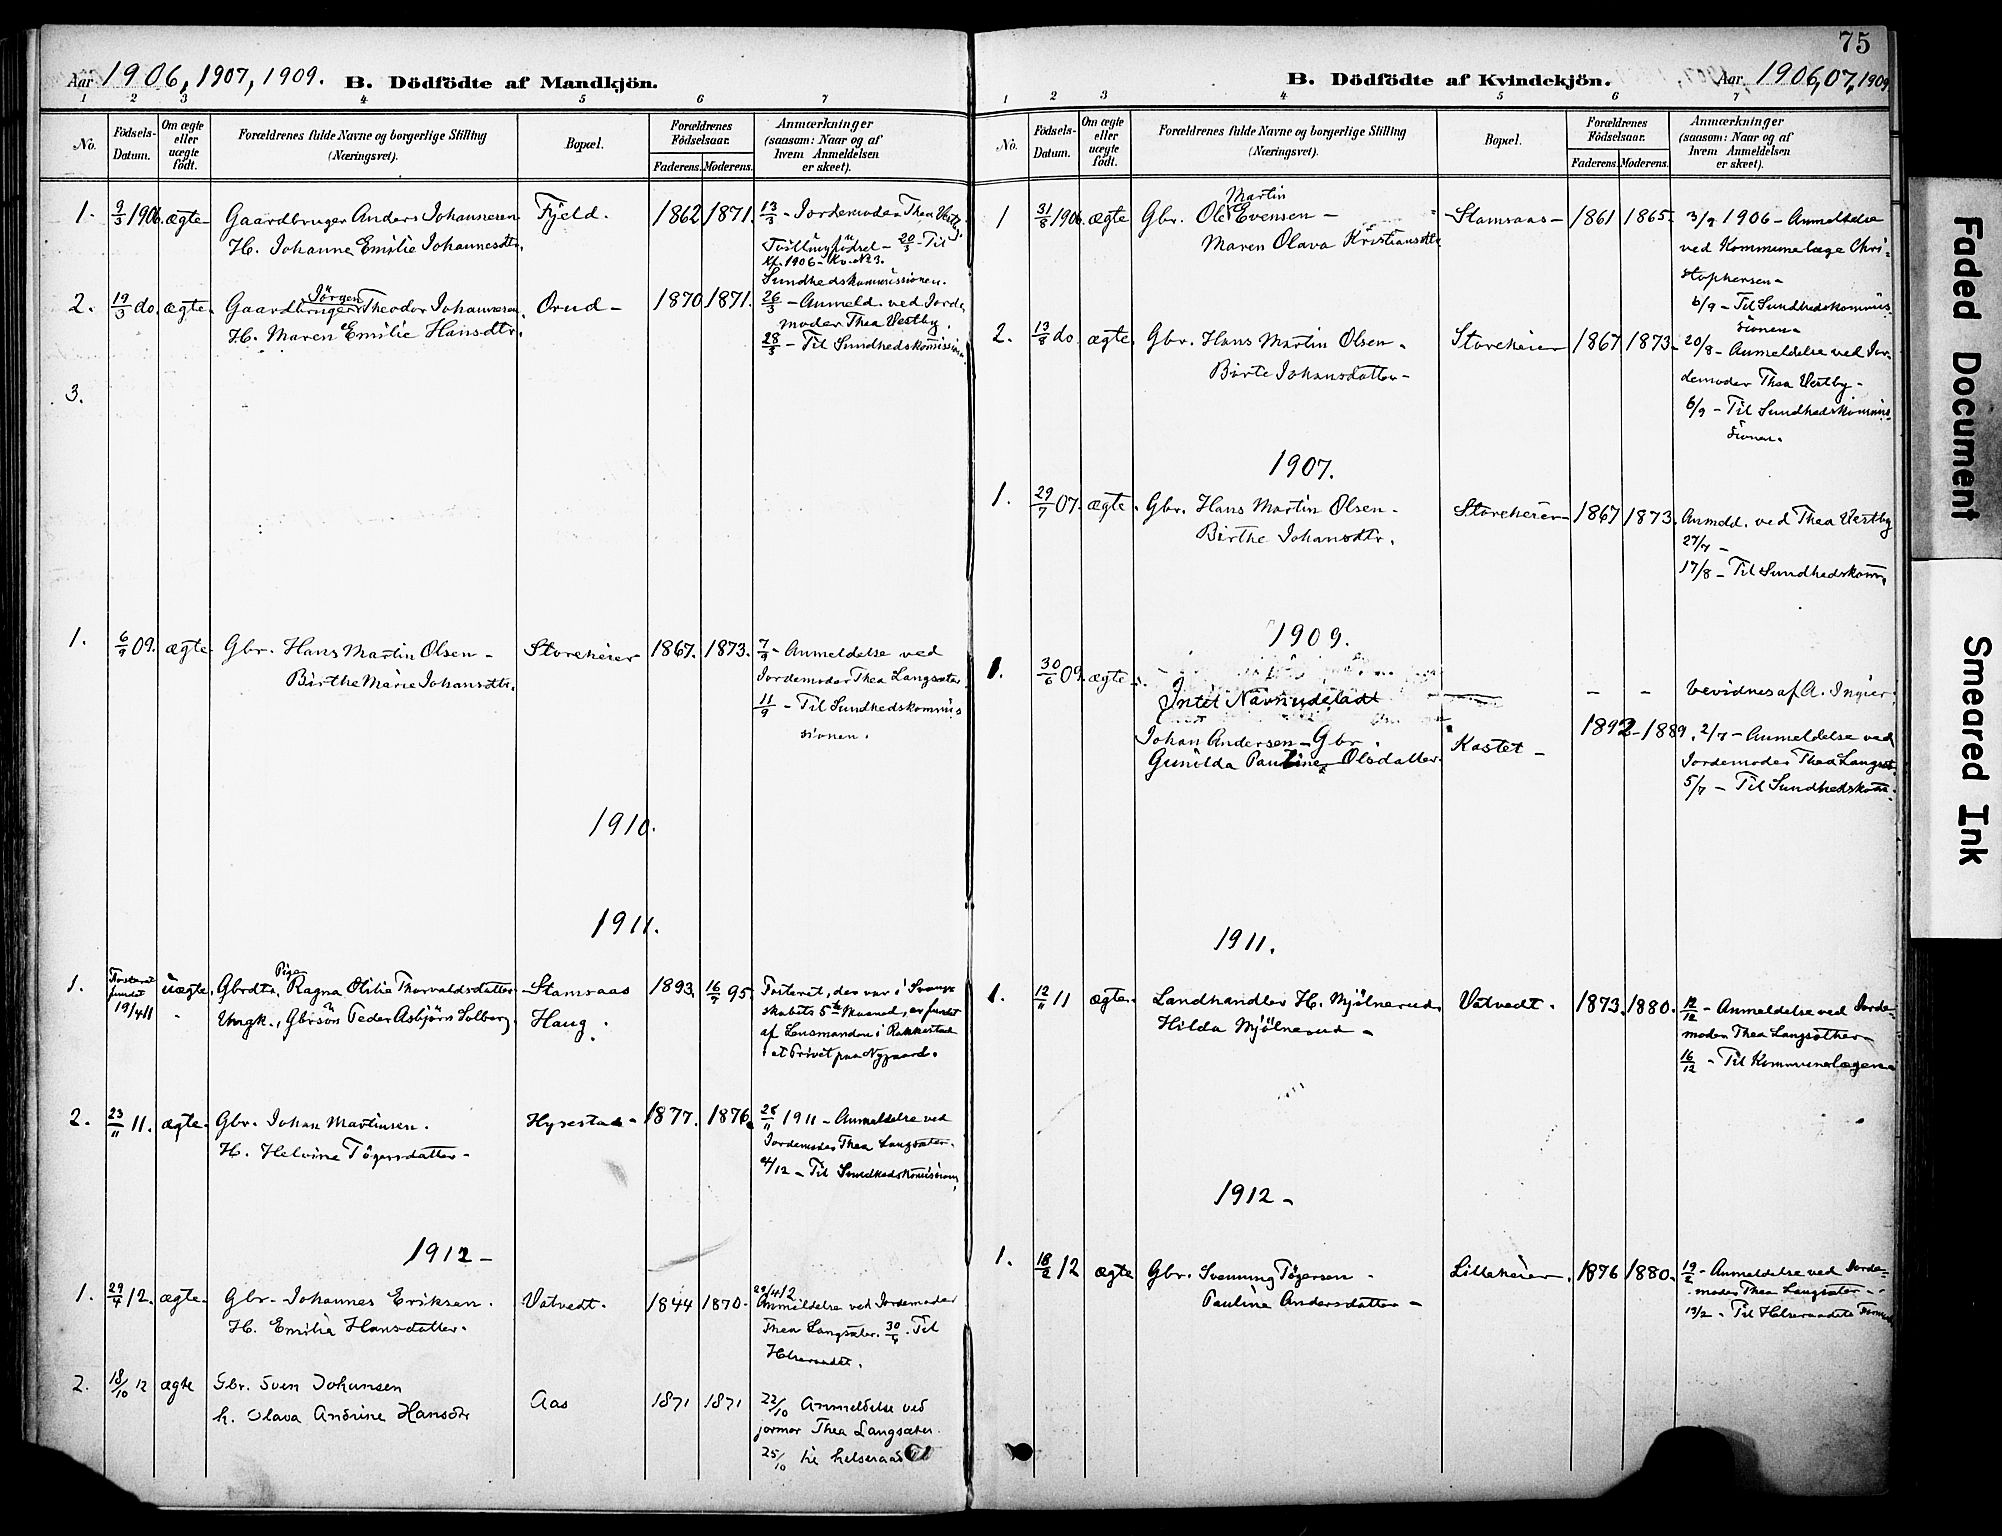 Aar 1906, 1907, 1909. B. Dödfödte af Mandkjön.
1 2 3 4 5 6 7
No. Födsels-Datum. Om ægte eller uægte födt. Forældrenes fulde Navne og borgerlige Stilling (Næringsvei). Bopæl. Forældrenes Födselsaar. Faderens. Moderens. Anmærkninger (saasom: Naar og af hvem Anmeldelsen er skeet).
1. 9/3 1906. ægte Gaardbruger Anders Johannesen Fjeld. 1862 1871. 13/3 - Jordemoder Thea Vestby.
H. Johanne Emilie Johannesdtr. Tvillingfödsel - 20/3 - Til
Kf. 1906 - Kv. No 3.
Sundhedskommissionen.
2. 19/3 do. ægte. Gaardbruger Jörgen Theodor Johannesen Orud - 1870 1871. 26/3 - Anmeld. ved Jorde-
H. Maren Emilie Hansdtr. moder Thea Vestby.
28/3 - Til Sundhedskommission
3.
1. 6/9 09. ægte Gbr. Hans Martin Olsen - Storeheier 1867. 1873. 7/9 - Anmeldelse ved
Birthe Marie Johansdtr. Jordemoder Thea Langsæter
11/9 - Til Sundhedskommis
sionen.
1910.
1911.
1. Fosteret fundet 19/4 11 uægte. Gbrdtr. Pige Ragna Otilie Thorvaldsdatter Stamsaas 1893. 16/7 95. Fosteret, der var i Svanger
Ungk., Gbrsön Peder Asbjörn Solberg Haug. skabets 5te Maaned, er fundet
af Lensmanden i Rakkestad
i et Privet paa Nygaard.
2. 23/11 11. ægte. Gbr. Johan Martinsen. Hyrestad - 1877. 1876. 28/11 1911 - Anmeldelse ved
H. Helvine Tögersdatter - Jordemoder Thea Langsæter.
4/12 - Til Sundhedskommisionen,
1912 -
1. 29/4 12. ægte. Gbr. Johannes Eriksen. Vatvedt. 1844 1870. 29/4 12
H. Emilie Hansdatter. Anmeldelse ved Jordemoder
Thea Langsæter. 30/4. Til
Helseraadet.
2. 18/10 12 ægte Gbr. Sven Johansen Aas 1871 1871 22/10 Anmeldelse ved
h. Olava Andrine Hansdtr jormor Thea Langsæter.
25/10 til helseraad
75
B. Dödfödte af Kvindekjön. Aar 1906, 07, 1909
1 2 3 4 5 6 7
No. Födsels-Datum. Om ægte eller uægte födt. Forældrenes fulde Navne og borgerlige Stilling (Næringsvei). Bopæl. Forældrenes Födselsaar. Faderens. Moderens. Anmærkninger (saasom: Naar og af hvem Anmeldelsen er skeet).
1 31/8 1906. ægte Gbr. Ole Martin Evensen - Stamsaas - 1861 1865. 3/9 1906 - Anmeldelse
Maren Olava Kristiansdtr ved Kommunelæge Chri-
stophersen -
6/9 - Til Sundhedskommis
sionen -
2. 13/8 do. ægte. Gbr. Hans Martin Olsen - Storeheier 1867 1873 - 20/8 - Anmeldelse ved Jor-
Birte Johansdatter - demoder Thea Vestby -
6/9 - Til Sundhedskommis
sionen.
1907.
1. 29/7 07. ægte. Gbr. Hans Martin Olsen - Storeheier - 1867 1873. Anmeld. ved Thea Vestby
Birthe Johansdtr. 27/7 -
17/8 - Til Sundhedskomm.
1909.
1. 30/6 09. ægte. Intet Navn udeladt - - bevidnes af A. Ingier.
Johan Andersen - Gbr. Kastet - 1892 - 1889. 2/7 - Anmeldelse ved
Gunilda Pauline Olsdatter. Jordemoder Thea Langsæt.
5/7 - Til Sundhedskomm.
1911.
1. 12/11 11 ægte. Landhandler H. Mjölnerud Vatvedt. 1873. 1880. 12/12 - Anmeldelse ved Jorde-
Hilda Mjölnerud - moder Thea Langsæther -
16/12 - Til Kommunelægen -
1912 -
1. 18/2 12 ægte Gbr. Svenning Tögersen - Lilleheier. 1876 1880. 19/2 - Anmeldelse ved Jorde-
Pauline Andersdatter - moder Thea Langsæter -
19/2 - Til Helseraadets Formand
Faded Document
Smeared Ink